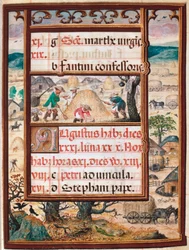 xj. g Scē. marthe virgīē
xix. b fantini confessoris
Augustus habꝫ dies
xxxi. luna xxx. Nox
habꝫ horas xj, dies vō xiij.
viij. c petri ad uincula.
xvi. d Stephani pape.